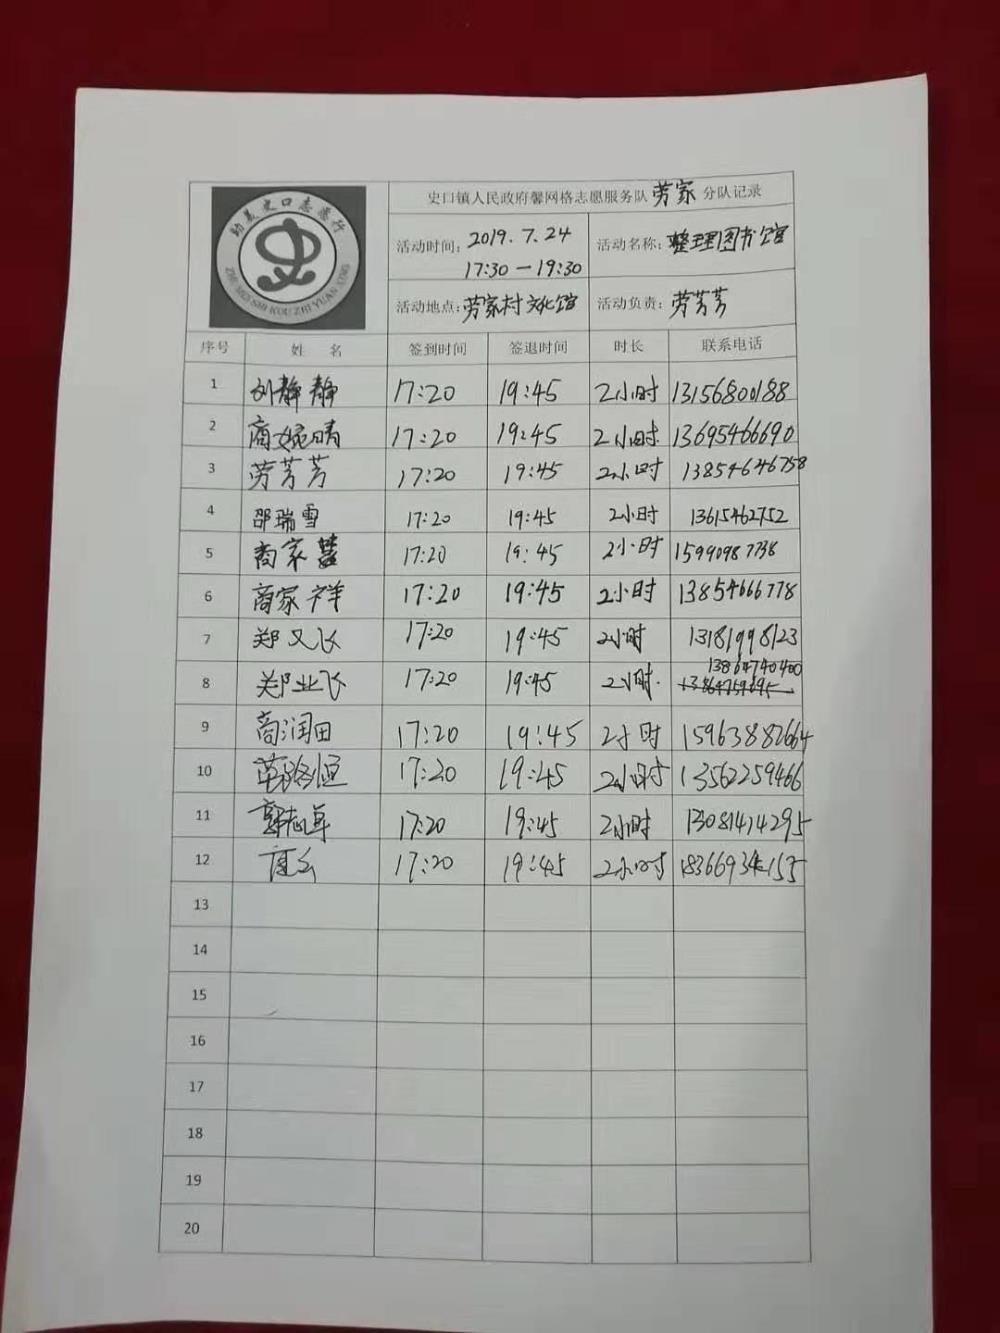 助美史口志愿行
ZHU MEI SHI KOU ZHI YUAN XING
史口镇人民政府馨网格志愿服务队劳家分队记录
活动时间：2019.7.24 活动名称：整理图书馆
17:30—19:30
活动地点：劳家村文化馆 活动负责：劳芳芳
序号 姓 名 签到时间 签退时间 时长 联系电话
1 刘静静 17:20 19:45 2小时 13156800188
2 商婉晴 17:20 19:45 2小时 13695466690
3 劳芳芳 17:20 19:45 2小时 13854646758
4 邵瑞雪 17:20 19:45 2小时 13615462752
5 商家 17:20 19:45 2小时 15990987738
6 商家祥 17:20 19:45 2小时 13854666778
7 郑又飞 17:20 19:45 2小时 13181998123
13864740400
8 郑业飞 17:20 19:45 2小时.
9 商润田 17:20 19:45 2小时 15963882664
10 17:20 19:45 2小时 13562259466
11 郭志军 17:20 19:45 2小时 13081414295
12 17:20 19:45 2小时
13
14
15
16
17
18
19
20